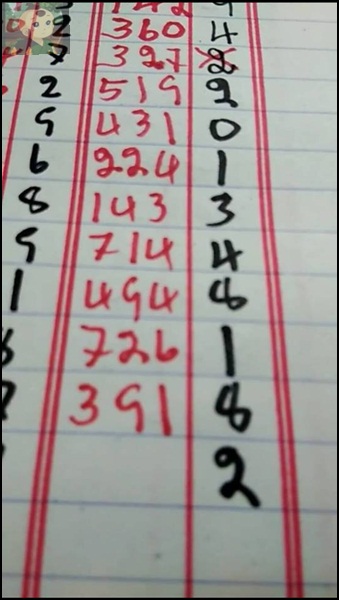 2 360 4
7 327 2
2 519 2
9 431 0
6 224 1
8 143 3
9 714 4
1 494 8
726 1
391 8
2